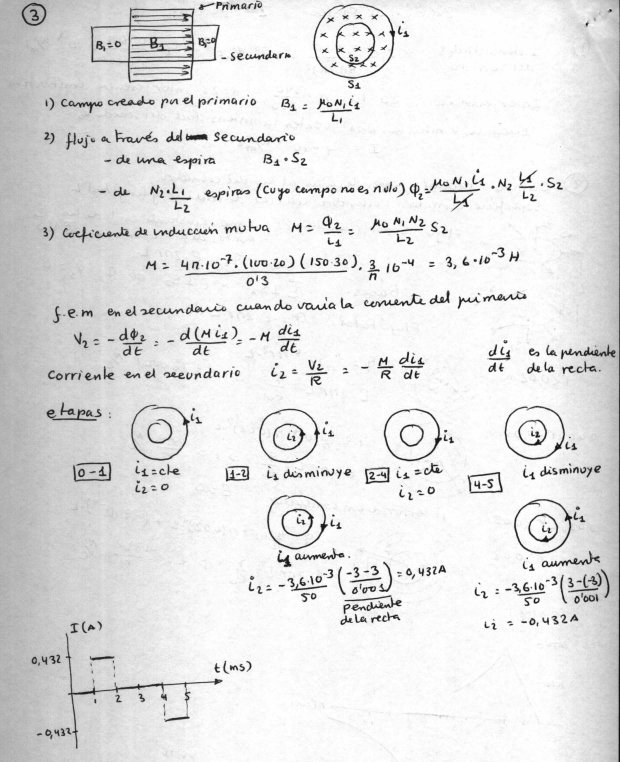 ③
Primario
B₁=0 B₁ B₁=0
- secundario
i₁
S₂
S₁
1) Campo creado por el primario B₁ = μ₀N₁i₁/L₁
2) flujo a través del secundario
- de una espira B₁·S₂
- de N₂·L₁/L₂ espiras (cuyo campo no es nulo) Φ₂ = μ₀N₁i₁/L₁ · N₂ L₁/L₂ · S₂
3) Coeficiente de inducción mutua M = Φ₂/i₁ = μ₀N₁N₂/L₂ S₂
M = 4π·10⁻⁷·(100·20)(150·30)/0'3 · 3/π 10⁻⁴ = 3,6·10⁻³ H
f.e.m en el secundario cuando varía la corriente del primario
V₂ = -dΦ₂/dt = -d(Mi₁)/dt = -M di₁/dt
di₁/dt es la pendiente de la recta.
Corriente en el secundario i₂ = V₂/R = -M/R di₁/dt
etapas:
i₁ i₂ i₁ i₁ i₂ i₁
0-1 i₁=cte 1-2 i₁ disminuye 2-4 i₁=cte 4-5 i₁ disminuye
i₂=0 i₂=0
i₂ i₁ i₂ i₁
i₁ aumenta. i₁ aumenta
i₂ = -3,6·10⁻³/50 (-3-3/0'001) = 0,432A
pendiente
de la recta
i₂ = -3,6·10⁻³/50 (3-(-3)/0'001)
i₂ = -0,432A
I(A)
0,432
t(ms)
1 2 3 4 5
-0,432